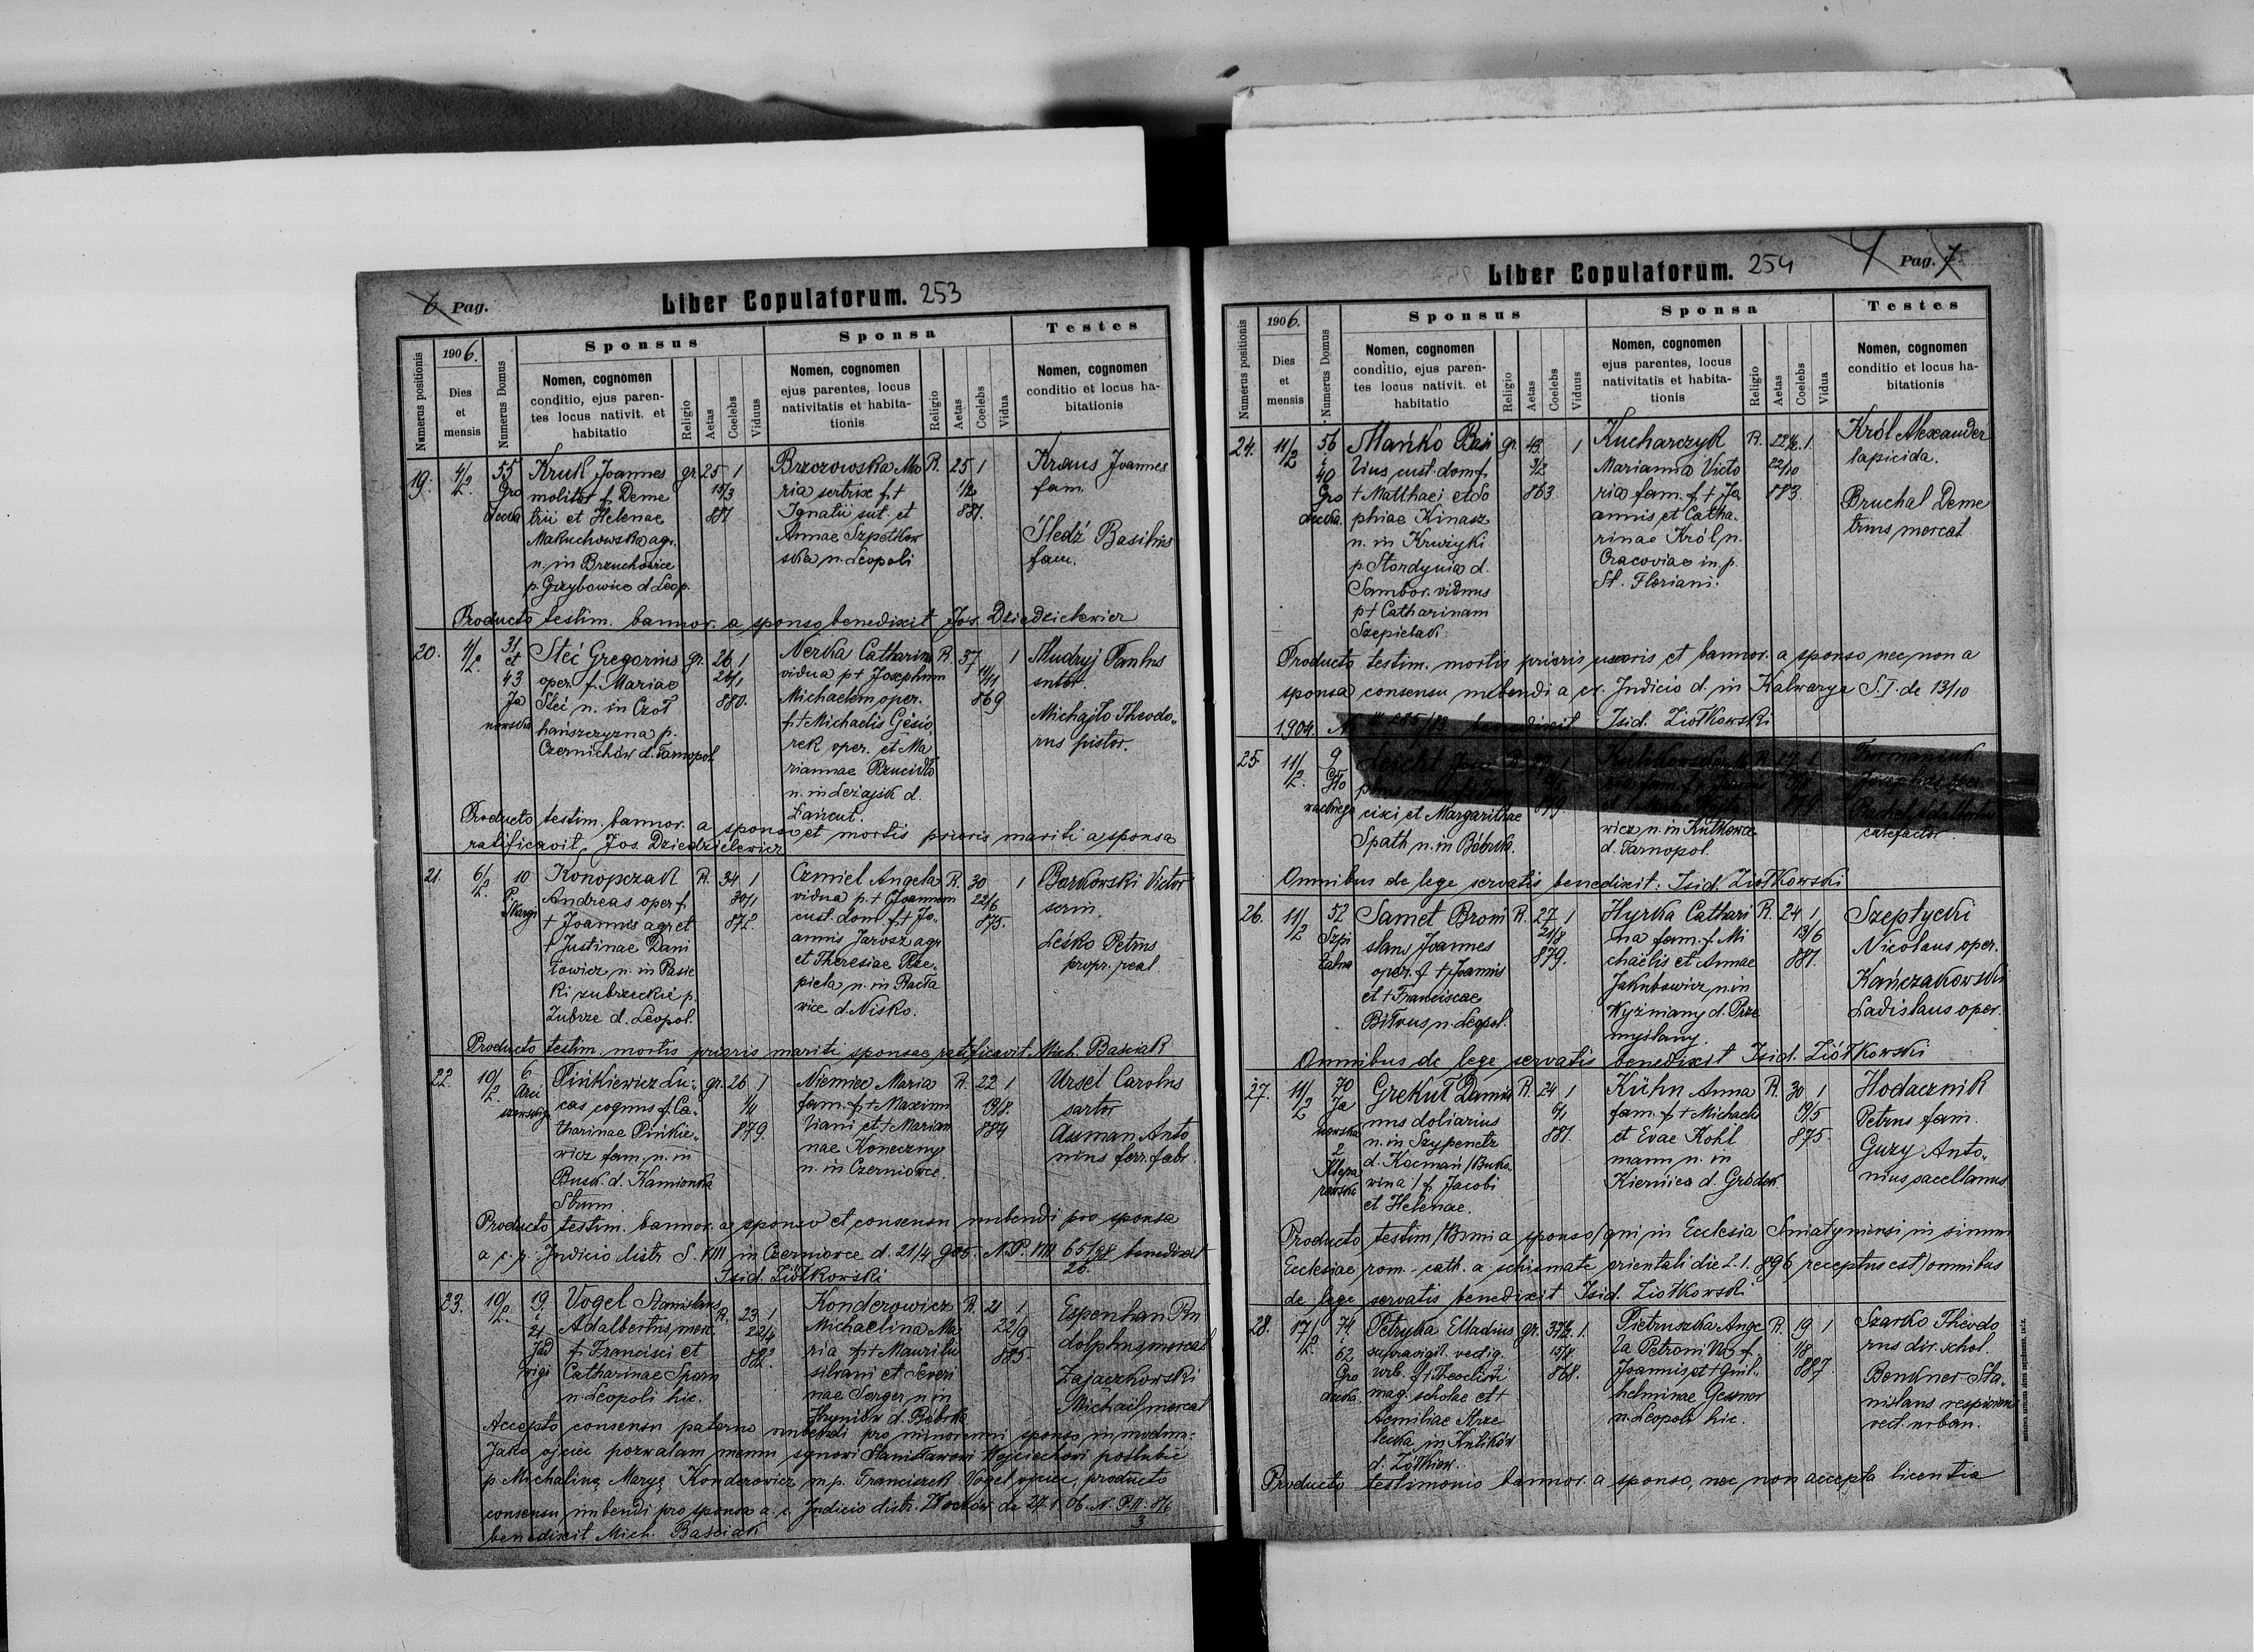 6 Pag.
Liber Copulatorum. 253
Numerus positionis
1906.
Dies
et
mensis
Numerus Domus
Sponsus
Nomen, cognomen
conditio, ejus paren-
tes locus nativit. et
habitatio
Religio
Aetas
Coelebs
Viduus
Sponsa
Nomen, cognomen
ejus parentes, locus
nativitatis et habita-
tionis
Religio
Aetas
Coelebs
Vidua
Testes
Nomen, cognomen
conditio et locus ha-
bitationis
19. 4/2. 55 Gro decka
Kruk Joannes
molitor f. Deme
trii et Helenae
Makuchowska agr.
n. in Brzuchowice
p. Grzybowice d Leop.
gr. 25 1
15/3
881
Brzozowska Ma
ria sertrix f. +
Ignatii sut. et
Annae Szpetkow
ska n. Leopoli
R. 25 1
1/2
881.
Kraus Joannes
fam.
Śledź Basilius
fam.
Producto testim. bannor. a sponso benedixit Jos. Dziedzielewicz
20. 4/2. 31 et 43 Ja nowska
Steć Gregorius
oper. f. Mariae
Steć n. in Czoł
hańszczyzna p.
Czernichów d. Tarnopol
gr. 26 1
26/1
880.
Nerka Catharina
vidua p + Josephum
Michaelem oper.
f. + Michaelis Gąsio
rek oper. et Ma
riannae Rzucidło
n. in Leżajsk d.
Łańcut.
R. 37 1
11/11
869
Mudryj Paulus
sutor.
Michajło Theodo-
rus pistor.
Producto testim. bannor. a sponso et mortis prioris mariti a sponsa
ratificavit, Jos. Dziedzielewicz
21. 6/2. 10 P. Skargi
Konopczak
Andreas oper f.
+ Joannis agr et
+ Justinae Dani
łowicz n. in Pasie
ki zubrzeckie p.
Zubrze d. Leopol.
R. 34 1
30/1
872.
Czmiel Angela
vidua p. + Joannem
cust. dom f. + Jo-
annis Jarosz agr
et Theresiae Rze-
piela n. in Racła
wice d. Nisko.
R. 30 1
22/6
875.
Borkowski Victor
scrin.
Leśko Petrus
propr. real
Producto testim. mortis prioris mariti sponsae ratificavit Mich. Baściak
22. 10/2. 6 Arci szewskiego
Pińkiewicz Lu-
cas coquus f. Ca-
tharinae Pińkie-
wicz fam. n. in
Busk. d. Kamionka
Strum.
gr. 26 1
1/11
879.
Niemiec Maria
fam. f. + Maximi
liani et + Marian
nae Koneczny
n. in Czerniowce
R. 22 1
19/8.
884
Ursel Carolus
sartor
Assman Anto
nius ferr. fabr.
Producto testim. bannor. a sponso et consensu nubendi pro sponsa
a c. r. Judicio distr S. VIII in Czerniowce d. 21/4 905. N. P. VIII 65/98 benedixit
26.
Isid. Ziółkowski
23. 10/2. 19. i 21. Jad wigi
Vogel Stanislaus
Adalbertus merc.
f. Francisci et
Catharinae Sporn
n. Leopoli hic.
R. 23 1
22/4
882.
Konderowicz
Michaelina Ma
ria f. + Maurilii
silvani et Severi
nae Serger n in
Hryniów d. Bóbrka
R. 21 1
22/9
885.
Espenhan Ru
dolphus mercat
Zajączkowski
Michaël mercat
Accepto consensu paterno nubendi pro minorenni sponso in modum:
Jako ojciec pozwalam memu synowi Stanisławowi Wojciechowi poślubić
p. Michalinę Maryę Konderowicz m. p. Franciszek Vogel ojciec, producto
consensu nubendi pro sponsa a. c. Judicio distr. Złoczów de 27. 1. 06. N. P. II. 86
3
benedixit Mich. Baściak
Liber Copulatorum. 254
Pag. 7
Numerus positionis
1906.
Dies
et
mensis
Numerus Domus
Sponsus
Nomen, cognomen
conditio, ejus paren-
tes locus nativit. et
habitatio
Religio
Aetas
Coelebs
Viduus
Sponsa
Nomen, cognomen
ejus parentes, locus
nativitatis et habita-
tionis
Religio
Aetas
Coelebs
Vidua
Testes
Nomen, cognomen
conditio et locus ha-
bitationis
24. 11/2 56 i 40 Gro decka.
Mańko Basi
lius cust. dom f.
+ Matthaei et So
phiae Kinasz
n. in Kruzyki
p. Stordynia d.
Sambor. viduus
p + Catharinam
Szepielak.
gr. 43. 1
3/2
863.
Kucharczyk
Marianna Victo
ria fam. f. + Jo
annis et Catha-
rinae Król n.
Cracoviae in p.
St. Floriani.
R. 22 1/2. 1.
22/10
883.
Król Alexander
lapicida.
Bruchal Deme
trius mercat
Producto testim. mortis prioris uxoris et bannor. a sponso nec non a
sponsa consensu nubendi a c. r. Judicio d. in Kalwarya S. I. de 13/10
1904. benedixit Isid. Ziółkowski
25. 11/2. 9 Gło wackiego
cisci et Margarithae
Spath n. in Bóbrka.
wicz n. in Kutkowce
d. Tarnopol.
Furmaniuk
calefactor.
Omnibus de lege servatis benedixit: Isid. Ziółkowski
26. 11/2 52 Szpi talna
Samet Broni
slaus Joannes
oper. f. + Joannis
et + Franciscae
Bitrus n. Leopol.
R. 27 1
21/8
879.
Hyrka Cathari
na fam. f. Mi
chaëlis et Annae
Jakubowicz n. in
Wyżniany d. Prze
myślany.
R. 24 1
13/6
881.
Szeptycki
Nicolaus oper.
Kańczakowski
Ladislaus oper.
Omnibus de lege servatis benedixit Isid. Ziółkowski
27. 11/2 70 Ja nowska 2 Klepa rowska
Grekul Damia
nus doliarius
n. in Szypenetz
d. Kocmań /Buko
wina/ f. Jacobi
et Helenae.
R. 24 1
6/1
881.
Kühn Anna
fam. f. + Michaelis
et Evae Kohl
mann n. in
Kiernica d. Gródek
R. 30 1
19/5
875.
Hodacznik
Petrus fam.
Guzy Anto-
nius sacellanus
Producto testim/Bemi a sponso/qui in Ecclesia Sniatyniensi in sinum
Ecclesiae rom-cath. a schismate orientali die 2. 1. 896 receptus est/omnibus
de lege servatis benedixit Isid. Ziółkowski
28. 17/2 74. i 62 Gro decka.
Petryka Elladius
supravigil. vectig.
urb. f. + Theoclisti
mag. scholae et +
Aemiliae Strze
lecka in Kulików
d. Żółkiew.
gr. 37 1/2. 1.
15/8.
868.
Pietruszka Ange
la Petronilla f.
Joannis et + Guil-
helminae Gessner
n. Leopoli hic.
R. 19 1
1/8
887.
Szarko Theodo
rus dir. schol.
Benkner Sta-
nislaus respiciens
vect. urban.
Producto testimonio bannor. a sponso, nec non accepta licentia